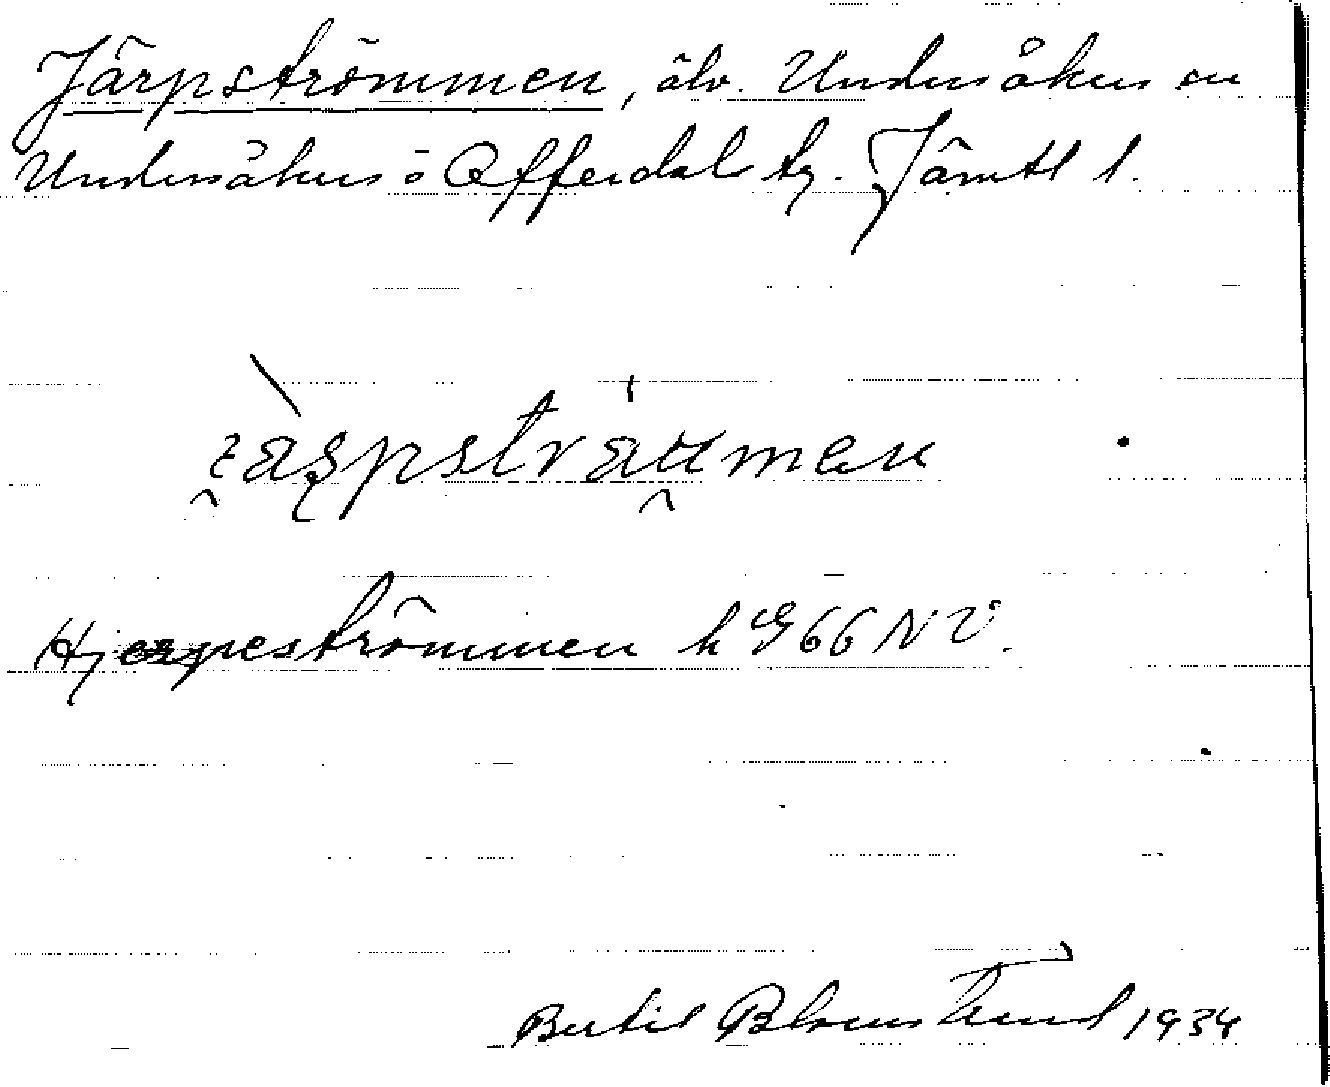 Järpströmmen, älv. Undersåkers sn
Undersåkers o Offerdals tg. Jämtl l.
Hjerpeströmmen h G 66 NV.
Bertil Blomstrand 1934